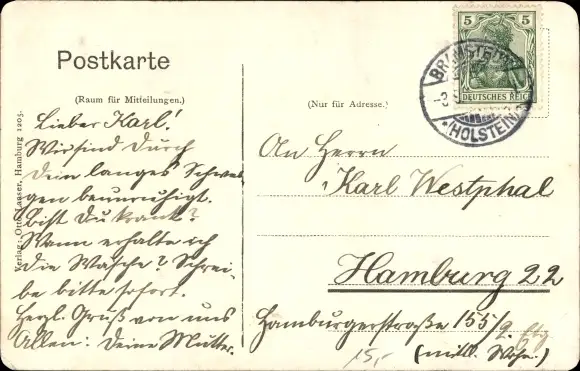 Postkarte
(Raum für Mitteilungen.)
(Nur für Adresse.)
5 5
DEUTSCHES REICH
(HOLSTEIN)
Verlag: Otto Lasser, Hamburg 1205.
Lieber Karl!
Wir sind durch
Dein langes Schwei
gen beunruhigt.
Bist Du krank?
Wann erhalte ich
die Wäsche? Schrei-
be bitte sofort.
Herzl. Gruß von uns
Allen: Deine Mutter.
An Herrn
Karl Westphal
Hamburg 22
Hamburgerstraße 155/2. Etg
(mittl. Wohn.)
15,-